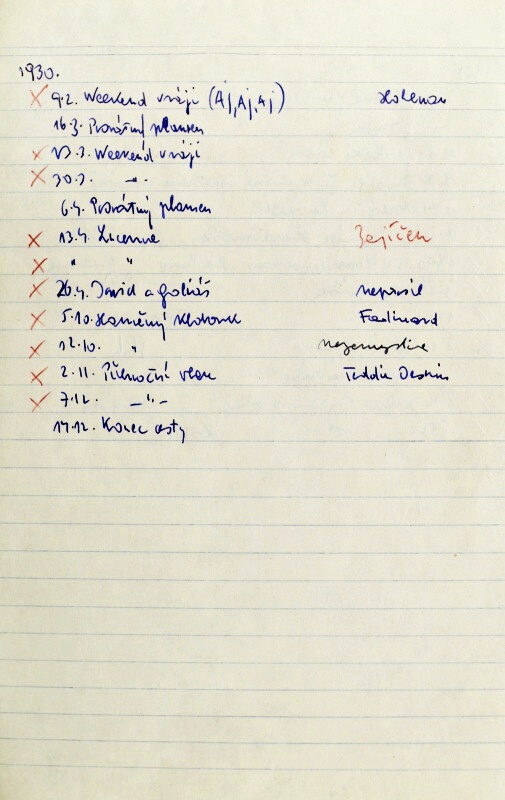 1930.
× 9.2. Weekend v ráji (Aj, Aj, Aj) Holeman
16.3. Posvátný plamen
× 23.3. Weekend v ráji
× 30.3. -"-
6.4. Posvátný plamen
× 13.4. Lucerna Zajíček
× " "
× 26.4. David a goliáš
× 5.10. Slaměný klobouk Fadinard
× 12.10. "
× 2.11. Půlnoční vlak Teddie Deakin
× 7.12. -"-
14.12. Konec cesty